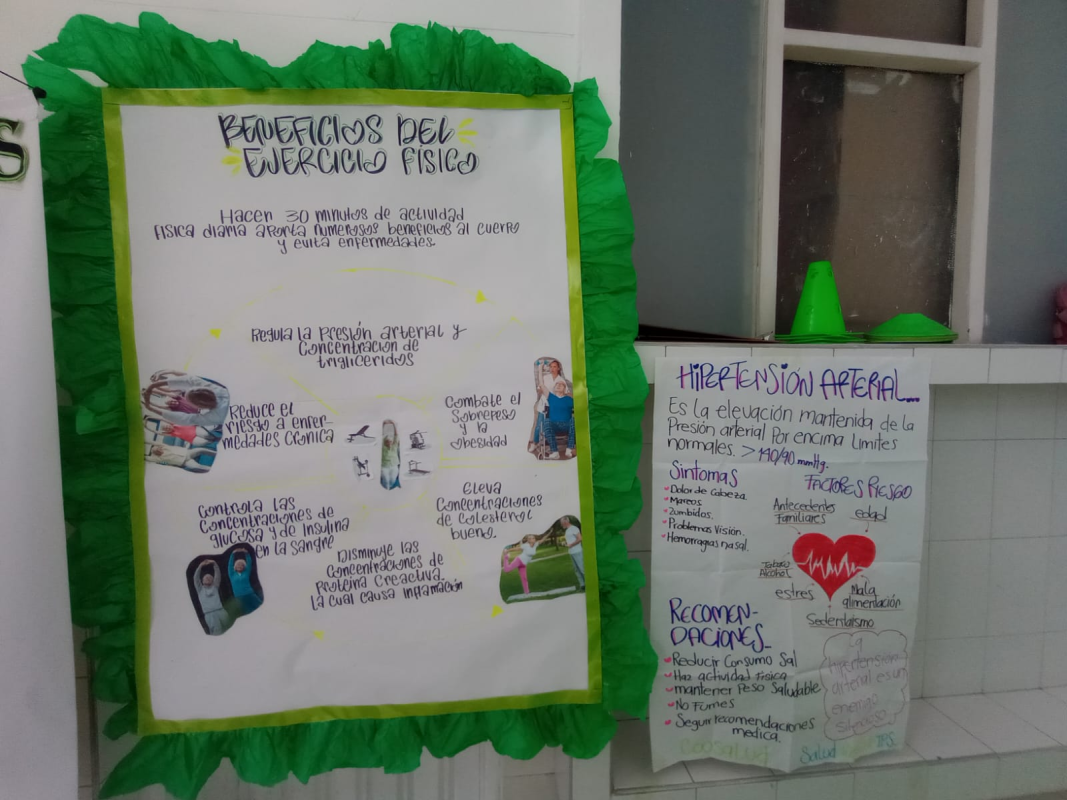 S
BENEFICIOS DEL
EJERCICIO FÍSICO
Hacer 30 minutos de actividad
Fisica diaria aporta numerosos beneficios al cuerpo
y evita enfermedades.
Regula la Presión arterial y
Concentracion de
trigliceridos
Reduce el
riesgo a enfer-
medades cronica
Combate el
Sobrepeso
y la
obesidad
Controla las
Concentraciones de
glucosa y de Insulina
en la sangre
Eleva
Concentraciones
de colesterol
bueno.
Disminuye las
Concentraciones de
Proteina Creactiva.
La cual causa Inflamación
HIPERTENSIÓN ARTERIAL...
Es la elevación mantenida de la
Presión arterial Por encima Limites
normales. > 140/90 mmHg.
Sintomas
Dolor de Cabeza.
Mareos
Zumbidos.
Problemas Visión.
Hemorragias nasal.
FACTORES RIESGO
Antecedentes
Familiares
edad
Tabaco
Alcohol
estres
Mala
alimentación
Sedentarismo
RECOMEN-
DACIONES.
Reducir Consumo Sal
Haz actividad Fisica
mantener Peso Saludable
No Fumes
Seguir recomendaciones
medica.
La
hipertensión
arterial es un
enemigo
silencioso
Coosalud
Salud
IPS.